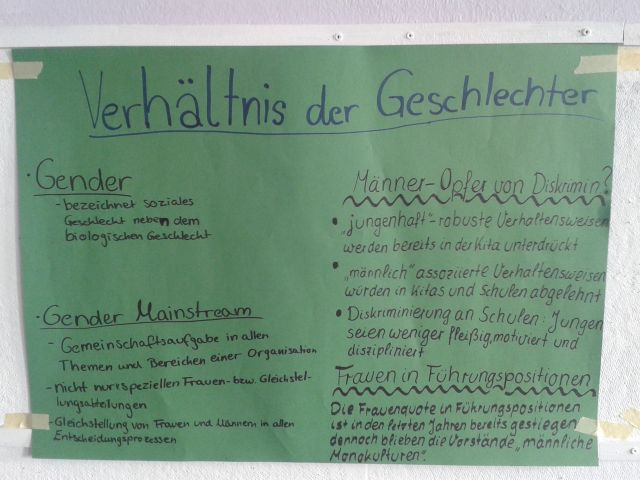 Verhältnis der Geschlechter
· Gender
- bezeichnet soziales
Geschlecht neben dem
biologischen Geschlecht
· Gender Mainstream
- Gemeinschaftsaufgabe in allen
Themen und Bereichen einer Organisation
- nicht nur speziellen Frauen- bzw. Gleichstel-
lungsabteilungen
- Gleichstellung von Frauen und Männern in allen
Entscheidungsprozessen
Männer-Opfer von Diskrimin?
• „jungenhaft"-robuste Verhaltensweisen
werden bereits in der Kita unterdrückt
• „männlich" assoziierte Verhaltensweisen
würden in Kitas und Schulen abgelehnt
• Diskriminierung an Schulen: Jungen
seien weniger fleißig, motiviert und
diszipliniert
Frauen in Führungspositionen
Die Frauenquote in Führungspositionen
ist in den letzten Jahren bereits gestiegen
dennoch blieben die Vorstände „männliche
Monokulturen".